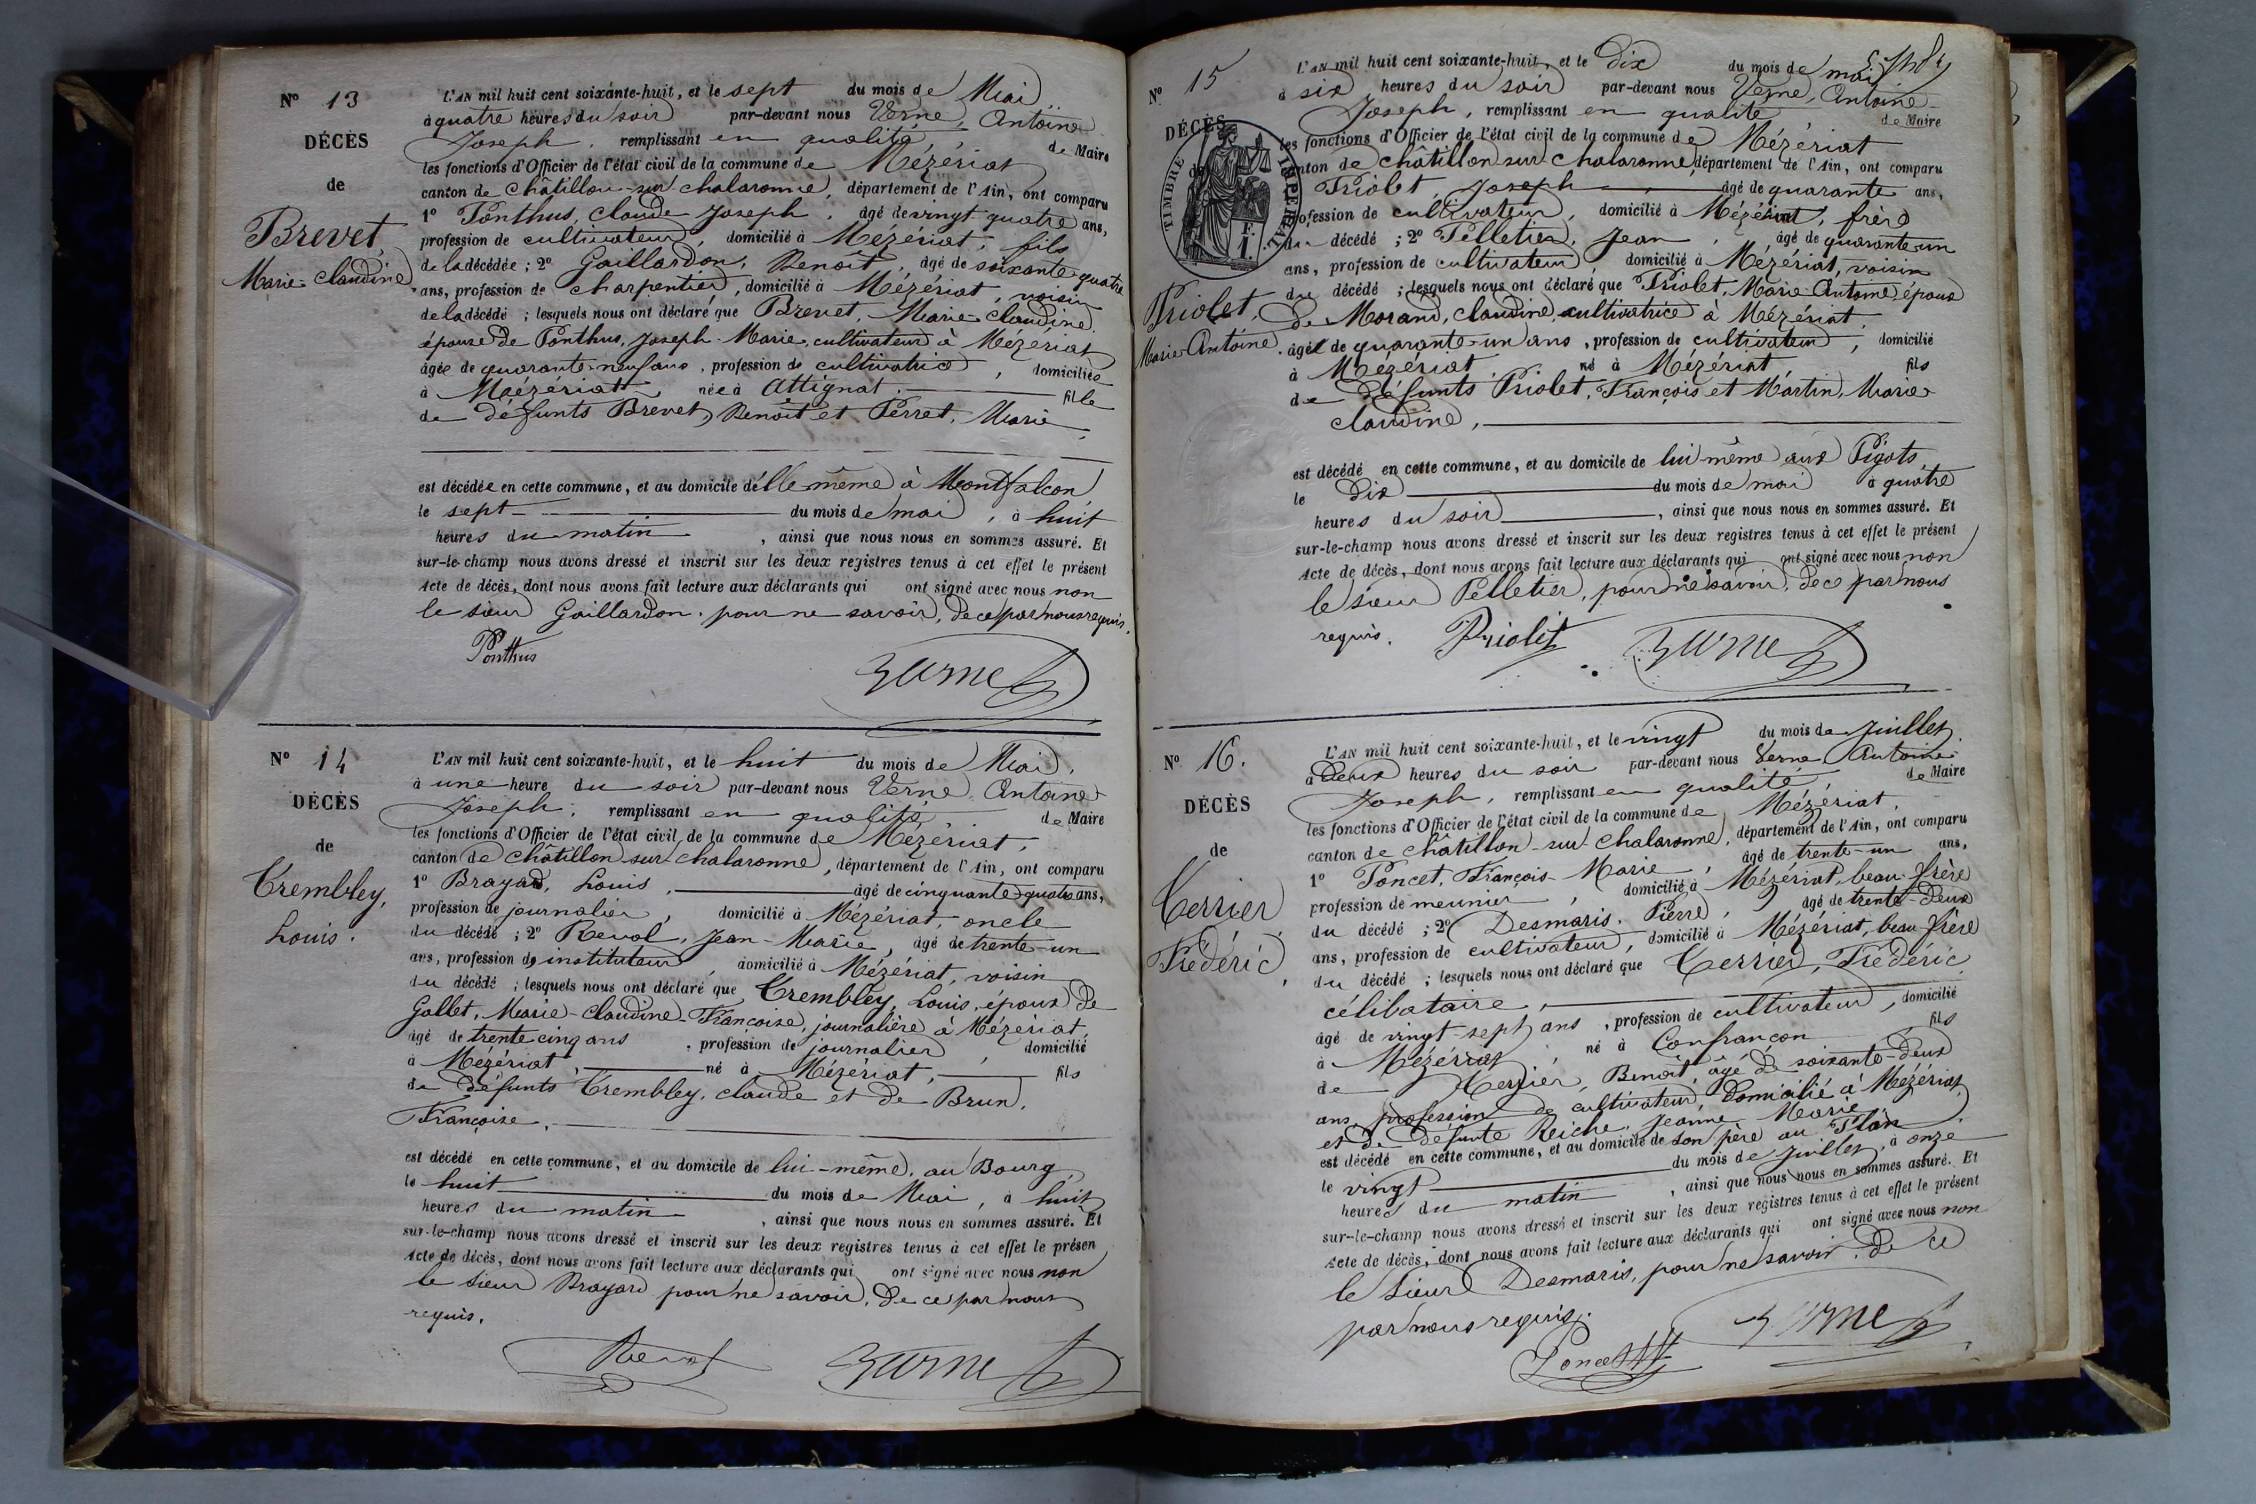 N° 13
DÉCÈS
de
Brevet,
Marie-Claudine
L'AN mil huit cent soixante-huit, et le sept du mois de Mai
à quatre heures du soir par-devant nous Verne, Antoine
Joseph, remplissant en qualité de Maire
les fonctions d'Officier de l'état civil de la commune de Mézériat
canton de Châtillon-sur-Chalaronne, département de l'Ain, ont comparu
1° Ponthus, Claude Joseph, âgé de vingt quatre ans,
profession de cultivateur, domicilié à Mézériat, fils
de la décédée ; 2° Gaillardon, Benoît, âgé de soixante-quatre
ans, profession de charpentier, domicilié à Mézériat, voisin
de la décédé ; lesquels nous ont déclaré que Brevet, Marie-Claudine,
épouse de Ponthus, Joseph-Marie, cultivateur à Mézériat
âgée de quarante-neuf ans, profession de cultivatrice, domiciliée
à Mézériat, née à Attignat, fille
de défunts Brevet, Benoît et Perret, Marie,
est décédée en cette commune, et au domicile d'elle-même à Montfalcon
le sept du mois de mai, à huit
heures du matin, ainsi que nous nous en sommes assuré. Et
sur-le-champ nous avons dressé et inscrit sur les deux registres tenus à cet effet le présent
Acte de décès, dont nous avons fait lecture aux déclarants qui ont signé avec nous non
le sieur Gaillardon, pour ne savoir, de ce par nous requis.
Ponthus Verne
N° 14
DÉCÈS
de
Trembley,
Louis.
L'AN mil huit cent soixante-huit, et le huit du mois de Mai,
à une heure du soir par-devant nous Verne, Antoine
Joseph, remplissant en qualité de Maire
les fonctions d'Officier de l'état civil de la commune de Mézériat,
canton de Châtillon-sur-Chalaronne, département de l'Ain, ont comparu
1° Brayard, Louis, âgé de cinquante-quatre ans,
profession de journalier, domicilié à Mézériat, oncle
du décédé ; 2° Revol, Jean-Marie, âgé de trente-un
ans, profession d'instituteur, domicilié à Mézériat, voisin
du décédé ; lesquels nous ont déclaré que Trembley, Louis, époux de
Gallet, Marie-Claudine-Françoise, journalière à Mézériat,
âgé de trente cinq ans, profession de journalier, domicilié
à Mézériat, né à Mézériat, fils
de défunts Trembley, Claude et de Brun,
Françoise,
est décédé en cette commune, et au domicile de lui-même, au Bourg,
le huit du mois de Mai, à huit
heures du matin, ainsi que nous nous en sommes assuré. Et
sur-le-champ nous avons dressé et inscrit sur les deux registres tenus à cet effet le présen
Acte de décès, dont nous avons fait lecture aux déclarants qui ont signé avec nous non
le sieur Brayard pour ne savoir, de ce par nous
requis.
Revol Verne
N° 15
DÉCÈS
TIMBRE IMPÉRIAL
1 F.
Priolet,
Marie-Antoine
L'AN mil huit cent soixante-huit, et le Dix du mois de mai
à six heures du soir par-devant nous Verne, Antoine
Joseph, remplissant en qualité de Maire
les fonctions d'Officier de l'état civil de la commune de Mézériat
canton de Châtillon-sur-Chalaronne, département de l'Ain, ont comparu
Priolet, Joseph âgé de quarante ans,
profession de cultivateur, domicilié à Mézériat, frère
du décédé ; 2° Pelletier, Jean, âgé de quarante-un
ans, profession de cultivateur domicilié à Mézériat, voisin
du décédé ; lesquels nous ont déclaré que Priolet, Marie-Antoine, époux
de Morand, Claudine, cultivatrice à Mézériat,
âgé de quarante-un ans, profession de cultivateur, domicilié
à Mézériat, né à Mézériat, fils
de défunts Priolet, François et Martin, Marie
Claudine,
est décédé en cette commune, et au domicile de lui même aux Pigots,
le Dix du mois de mai à quatre
heures du soir, ainsi que nous nous en sommes assuré. Et
sur-le-champ nous avons dressé et inscrit sur les deux registres tenus à cet effet le présent
Acte de décès, dont nous avons fait lecture aux déclarants qui ont signé avec nous non
le sieur Pelletier, pour ne savoir, de ce par nous
requis. Priolet Verne
N° 16.
DÉCÈS
de
Terrier,
Frédéric,
L'AN mil huit cent soixante-huit, et le vingt du mois de Juillet,
à deux heures du soir par-devant nous Verne, Antoine
Joseph, remplissant en qualité de Maire
les fonctions d'Officier de l'état civil de la commune de Mézériat,
canton de Châtillon-sur-Chalaronne, département de l'Ain, ont comparu
1° Poncet, François-Marie, âgé de trente-un ans,
profession de meunier, domicilié à Mézériat, beau-frère
du décédé ; 2° Desmaris, Pierre, âgé de trente-deux
ans, profession de cultivateur, domicilié à Mézériat, beau frère
du décédé ; lesquels nous ont déclaré que Terrier, Frédéric
célibataire,
âgé de vingt sept ans, profession de cultivateur, domicilié
à Mézériat, né à Confrançon, fils
de Terrier, Benoît, âgé de soixante-deux
ans, profession de cultivateur, domicilié à Mézériat,
et de défunte Reiche, Jeanne Marie,
est décédé en cette commune, et au domicile de son père au Plan
le vingt du mois de Juillet, à onze
heures du matin, ainsi que nous nous en sommes assuré. Et
sur-le-champ nous avons dressé et inscrit sur les deux registres tenus à cet effet le présent
Acte de décès, dont nous avons fait lecture aux déclarants qui ont signé avec nous non
le sieur Desmaris, pour ne savoir, de ce
par nous requis.
Poncet Verne